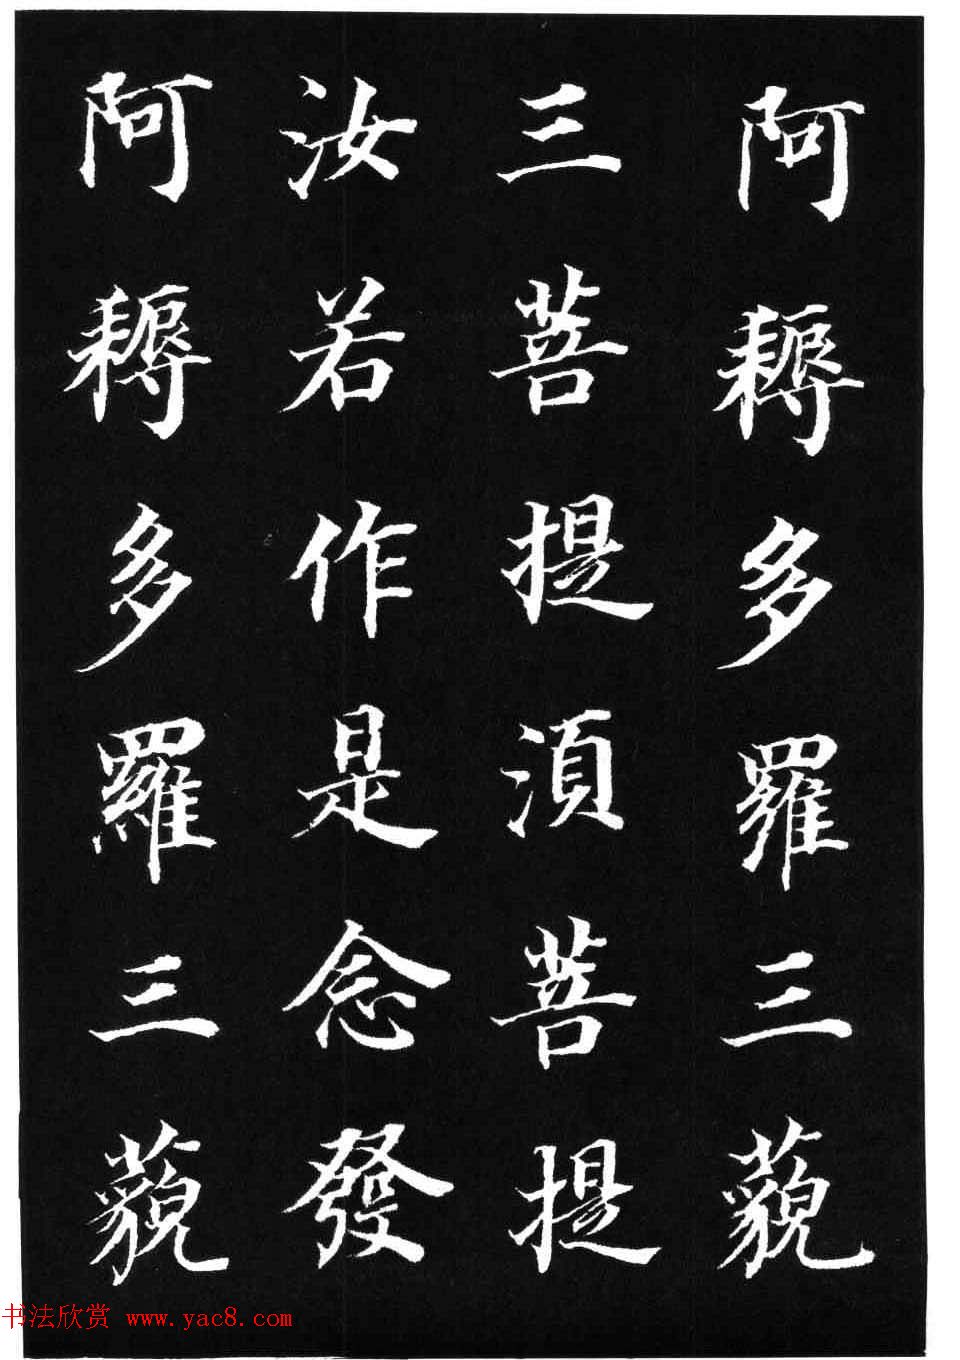 阿耨多羅三藐
三菩提須菩提
汝若作是念發
阿耨多羅三藐
书法欣赏 www.yac8.com